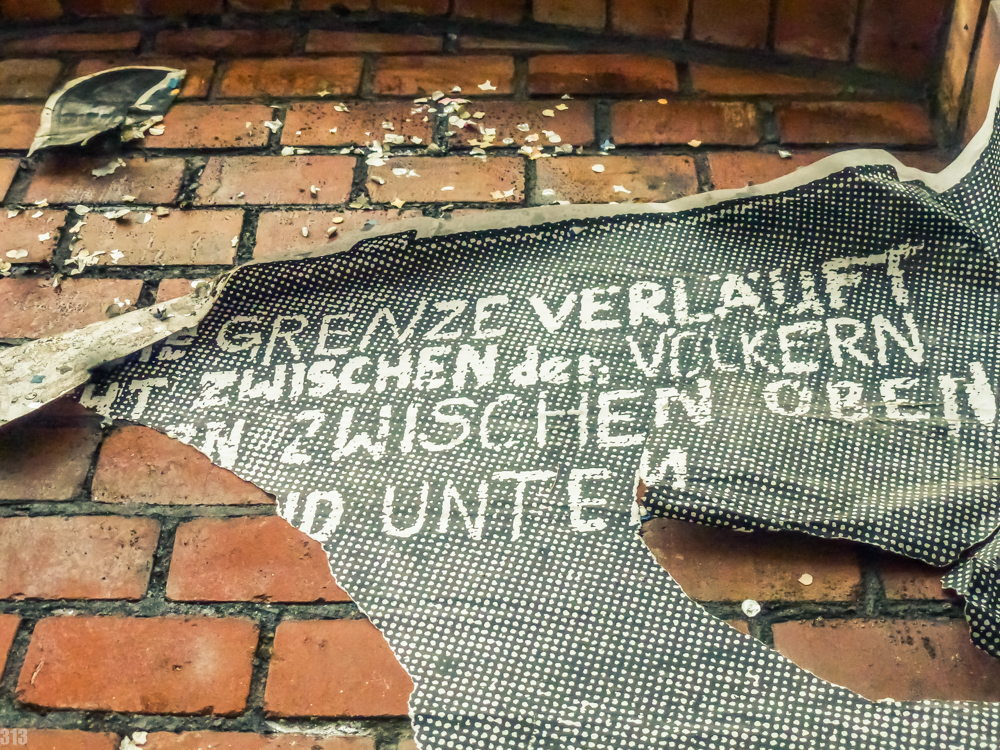 GRENZE VERLÄUFT
HT ZWISCHEN den VÖLKERN
RN ZWISCHEN OBEN
ND UNTEN
313